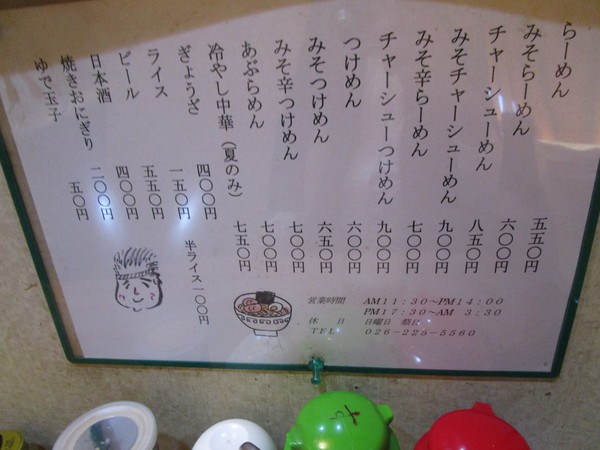 らーめん 五五〇円
みそらーめん 六〇〇円
チャーシューめん 八五〇円
みそチャーシューめん 九〇〇円
みそ辛らーめん 七〇〇円
チャーシューつけめん 九〇〇円
つけめん 六〇〇円
みそつけめん 六五〇円
みそ辛つけめん 七〇〇円
あぶらめん 七〇〇円
冷やし中華（夏のみ） 七五〇円
ぎょうざ 四〇〇円
ライス 一五〇円 半ライス一〇〇円
ビール 五五〇円
日本酒 四〇〇円
焼きおにぎり 二〇〇円
ゆで玉子 五〇円
営業時間 AM11:30～PM14:00
PM17:30～AM 3:30
休 日 日曜日 祭日
TEL 026-225-5560